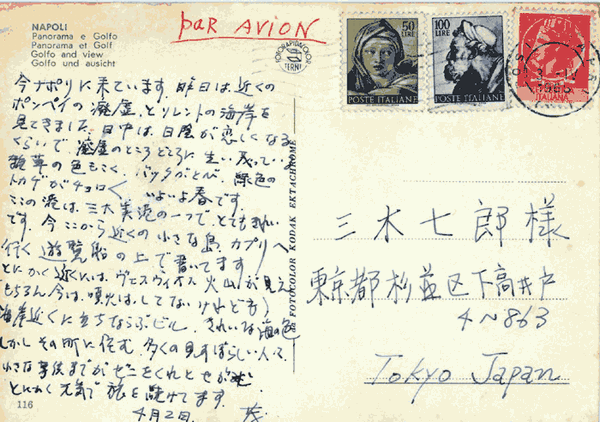 NAPOLI
Panorama e Golfo
Panorama et Golf
Golfo and view
Golfo und ausicht
par AVION
50
LIRE
POSTE ITALIANE
100
LIRE
POSTE ITALIANE
ITALIANA
今ナポリに来ています。昨日は近くの
ポンペイの廃墟とソレントの海岸を
見てきました。日中は日屋が恋しくなる
くらいで、廃墟のところどころに生い茂っている
雑草の色もこく、バッタがとび、緑色の
トカゲがチョロ〳〵 いよいよ春です。
この港は、三大美港の一つで、とてもきれい
です。今ここから近くの小さな島、カプリへ
行く遊覧船の上で書いてます
とにかく近くには、ヴェスヴィオス火山が見え
もちろん今は、噴火はしてないけれども)
海岸近くに立ちならぶビル。きれいな海の色
しかしその町に住む、多くの見すぼらしい人々
小さな子供までがゼニをくれとせがむ
とにかく元気で旅を続けてます。
4月2日. 茂
FOTOCOLOR KODAK EKTACHROME
三木七郎様
東京都杉並区下高井戸
4〜863
Tokyo Japan
116